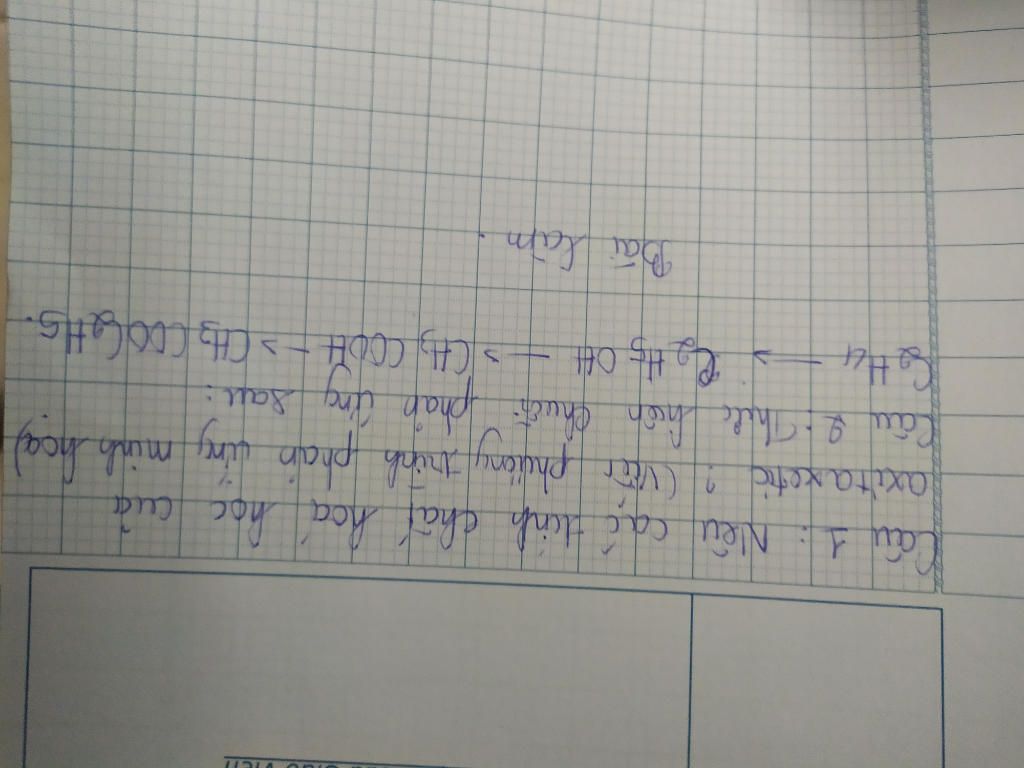 Câu 1: Nêu các tính chất hoá học của
axitaxetic? (Viết phương trình phản ứng minh hoạ)
Câu 2: Thực hiện chuỗi phản ứng sau:
C2H4 —> C2H5OH —> CH3COOH —> CH3COOC2H5.
Bài làm.